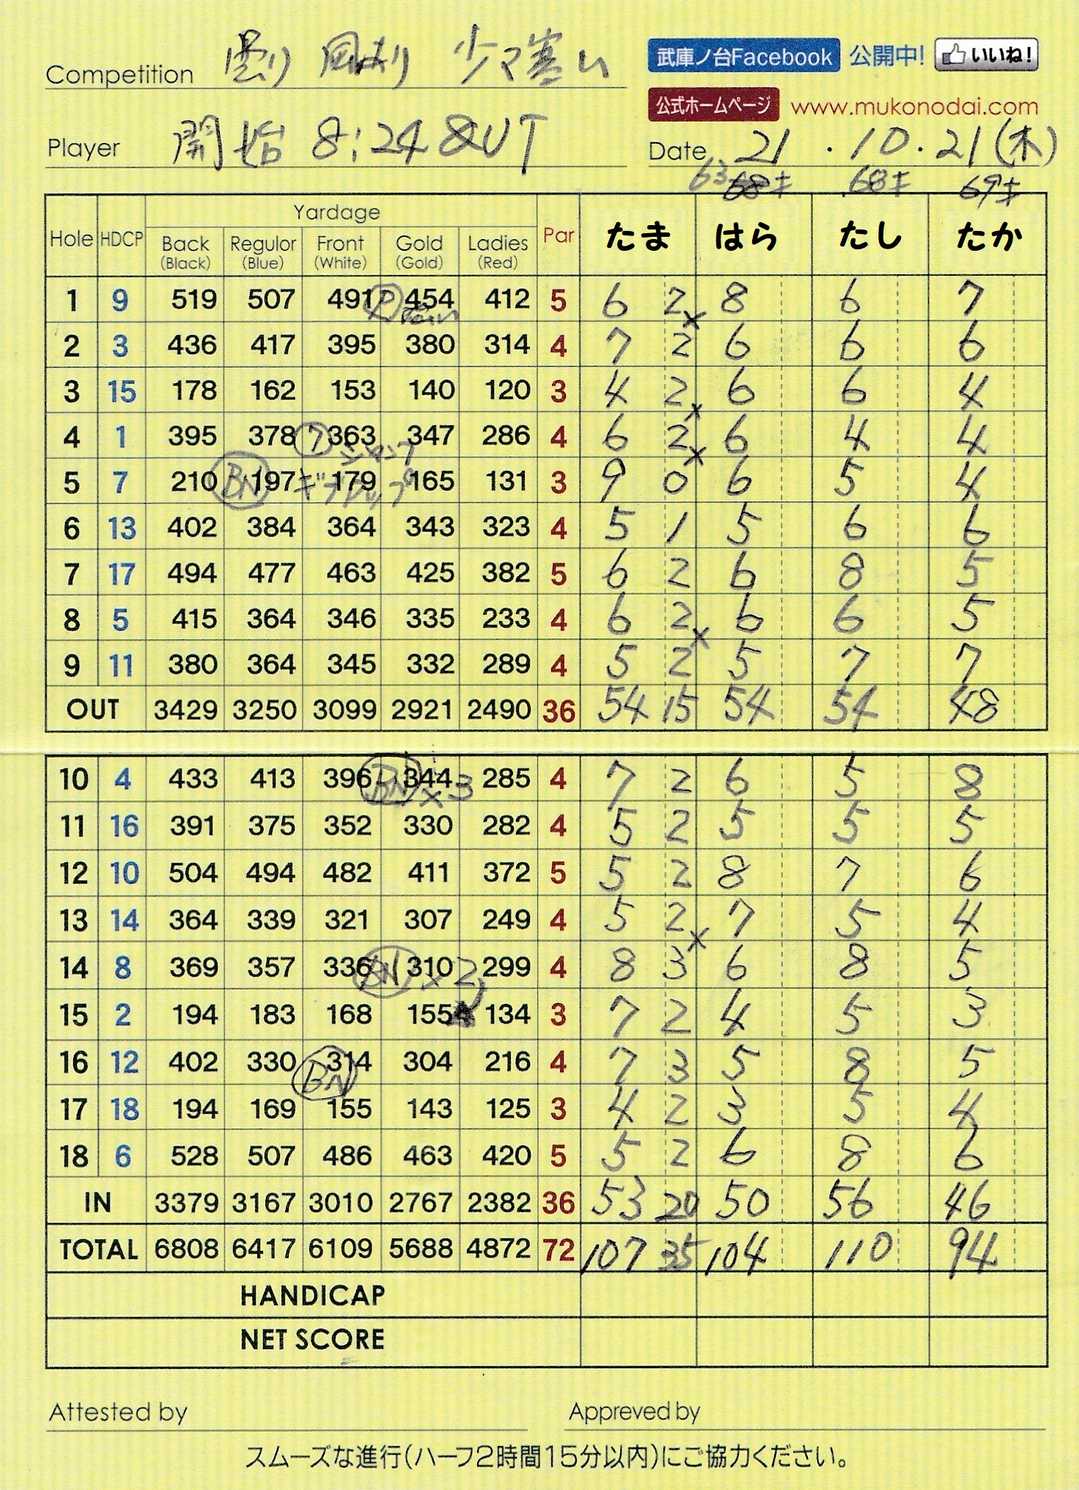 Competition 曇り 風あり 少々寒い
武庫ノ台Facebook 公開中! いいね!
公式ホームページ www.mukonodai.com
Player 開始 8:24 &UT
Date 21 . 10 . 21 (木)
63 68キ 68キ 69キ
Hole HDCP Yardage Par たま はら たし たか
Back Regulor Front Gold Ladies
(Black) (Blue) (White) (Gold) (Red)
1 9 519 507 491 454 412 5 6 2 8 6 7
2 3 436 417 395 380 314 4 7 2 6 6 6
3 15 178 162 153 140 120 3 4 2 6 6 4
4 1 395 378 363 347 286 4 6 2 6 4 4
5 7 210 BN 197 179 165 131 3 9 0 6 5 4
6 13 402 384 364 343 323 4 5 1 5 6 6
7 17 494 477 463 425 382 5 6 2 6 8 5
8 5 415 364 346 335 233 4 6 2 6 6 5
9 11 380 364 345 332 289 4 5 2 5 7 7
OUT 3429 3250 3099 2921 2490 36 54 15 54 54 48
10 4 433 413 396 BN 344 ×3 285 4 7 2 6 5 8
11 16 391 375 352 330 282 4 5 2 5 5 5
12 10 504 494 482 411 372 5 5 2 8 7 6
13 14 364 339 321 307 249 4 5 2 7 5 4
14 8 369 357 336 BN 310 ×2 299 4 8 3 6 8 5
15 2 194 183 168 155 134 3 7 2 4 5 3
16 12 402 330 314 304 216 4 7 3 5 8 5
BN
17 18 194 169 155 143 125 3 4 2 3 5 4
18 6 528 507 486 463 420 5 5 2 6 8 6
IN 3379 3167 3010 2767 2382 36 53 20 50 56 46
TOTAL 6808 6417 6109 5688 4872 72 107 35 104 110 94
HANDICAP
NET SCORE
Attested by
Appreved by
スムーズな進行(ハーフ2時間15分以内)にご協力ください。